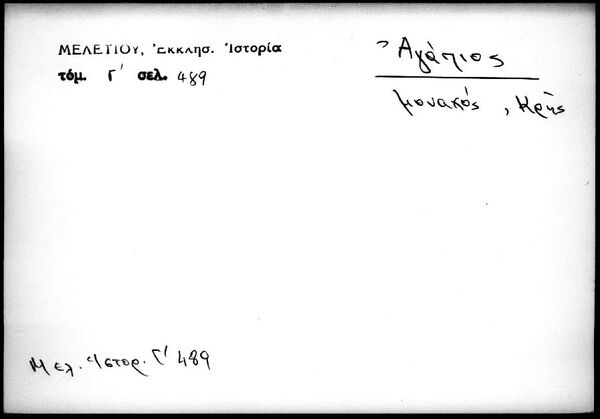 ΜΕΛΕΤΙΟΥ, Ἐκκλησ. Ἱστορία
τόμ. Γ' σελ. 489
Ἀγάπιος
μοναχός, Κρὴς
Μελ. Ἱστορ. Γ' 489